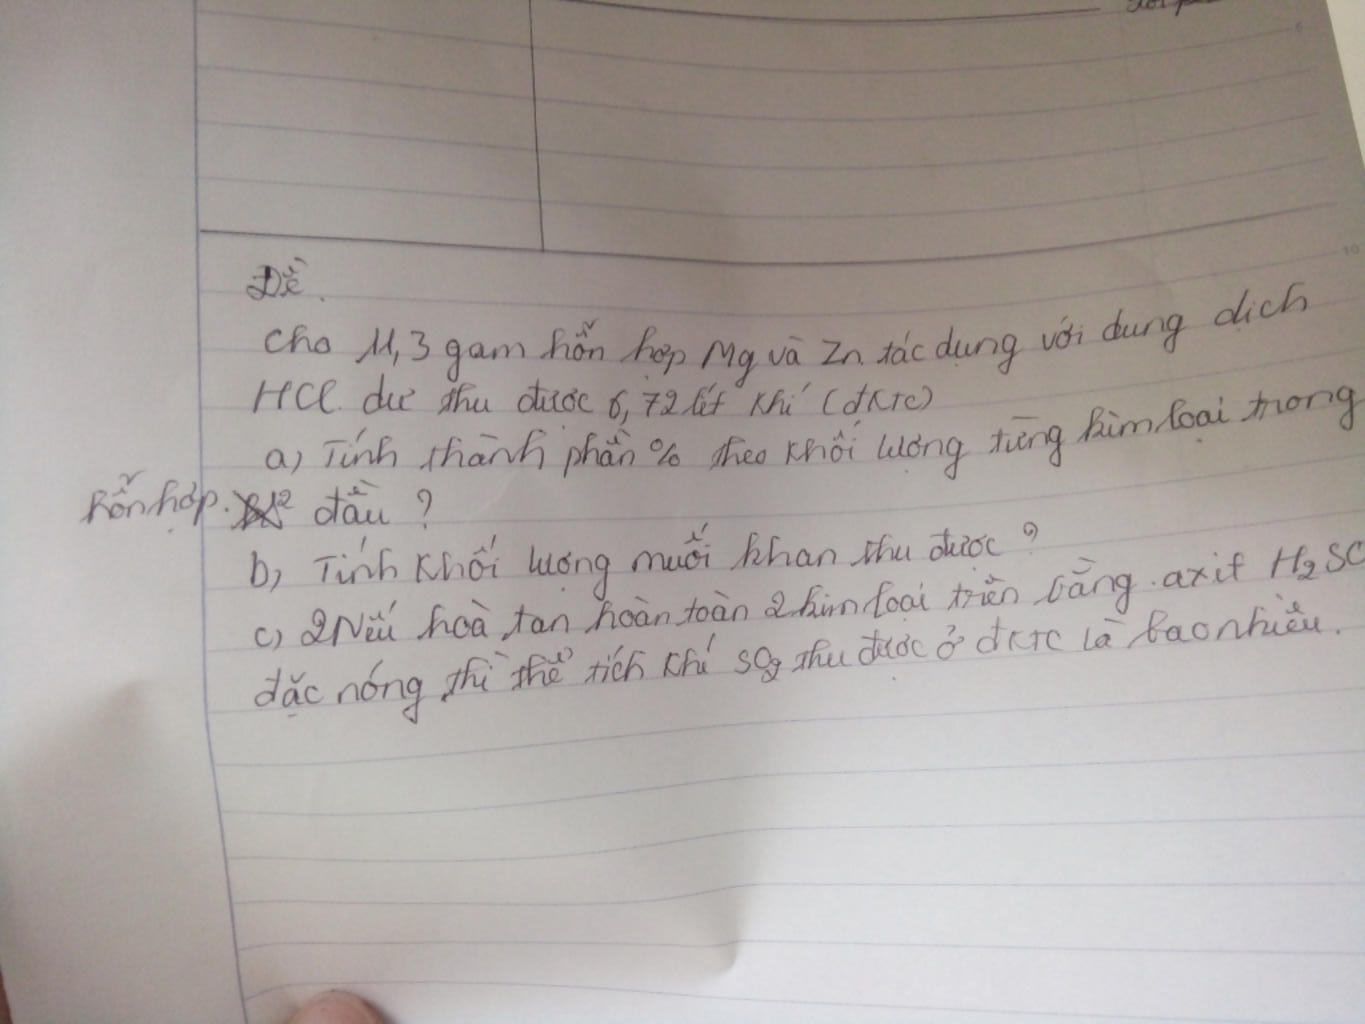 Đề.
Cho 11,3 gam hỗn hợp Mg và Zn tác dụng với dung dịch
HCl dư thu được 6,72 lít khí (đktc)
a) Tính thành phần % theo khối lượng từng kim loại trong
hỗn hợp. đầu ?
b) Tính khối lượng muối khan thu được ?
c) 2 Nếu hoà tan hoàn toàn 2 kim loại trên bằng axit H2SO
đặc nóng thì thể tích khí SO2 thu được ở đktc là bao nhiêu.